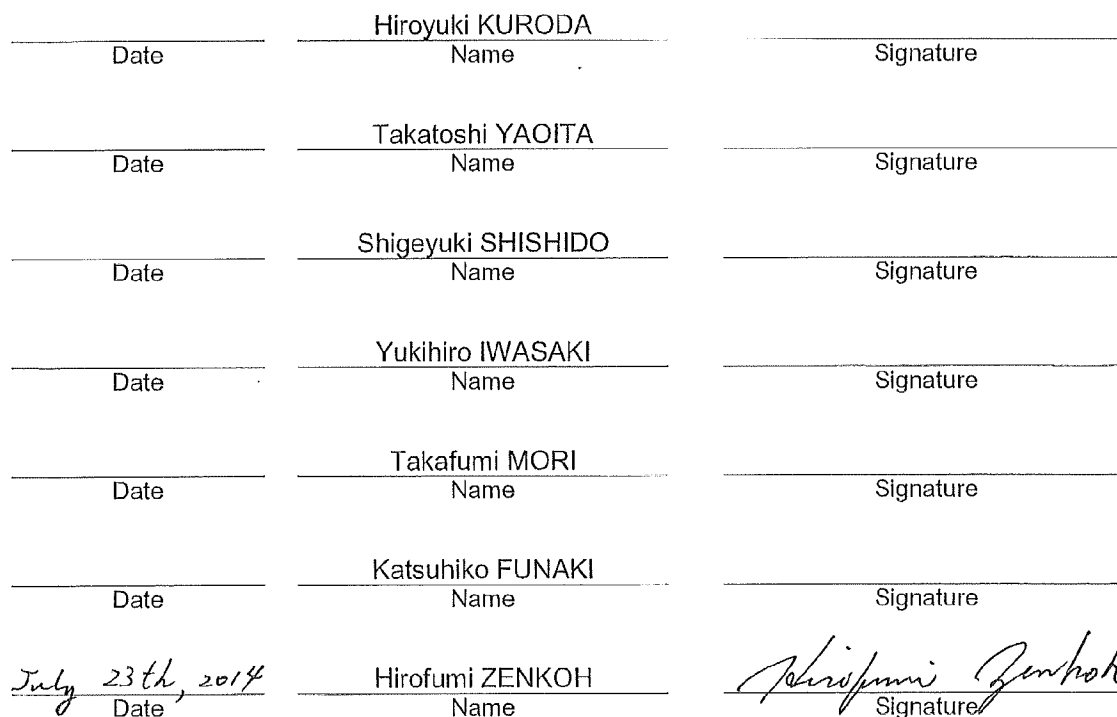 Hiroyuki KURODA
Date Name Signature
Takatoshi YAOITA
Date Name Signature
Shigeyuki SHISHIDO
Date Name Signature
Yukihiro IWASAKI
Date Name Signature
Takafumi MORI
Date Name Signature
Katsuhiko FUNAKI
Date Name Signature
July 23th, 2014 Hirofumi ZENKOH Hirofumi Zenkoh
Date Name Signature